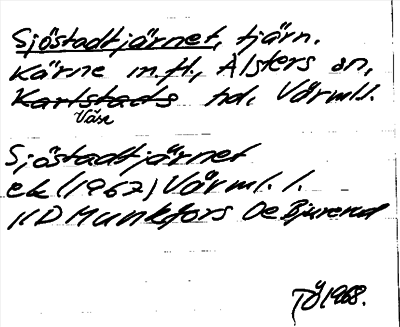 Sjöstadtjärnet, tjärn.
Kärne m.fl., Alsters sn,
Karlstads hd. Värml.l.
Väse
Sjöstadtjärnet
ek (1962) Värml. l.
11D Munkfors 0e Bjurerud
TÖ 1968.